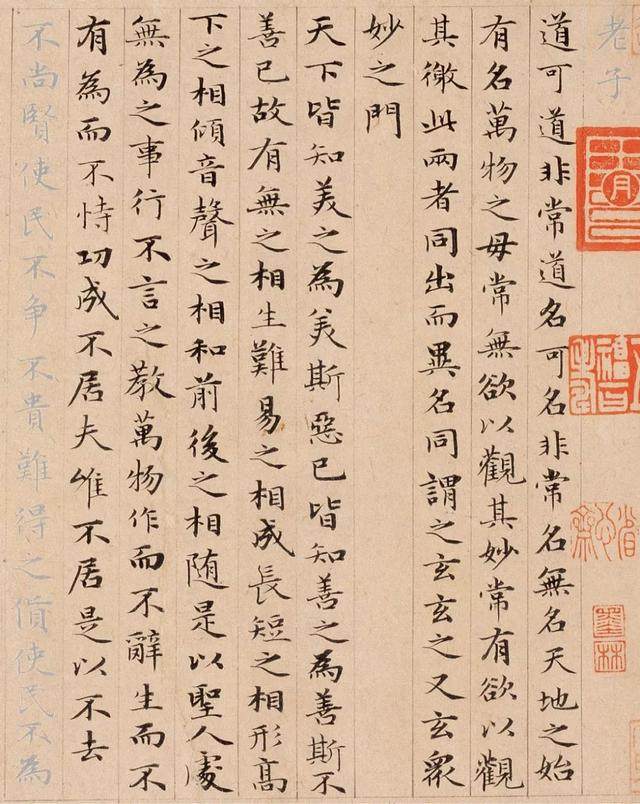 老子
道可道非常道名可名非常名無名天地之始
有名萬物之母常無欲以觀其妙常有欲以觀
其徼此兩者同出而異名同謂之玄玄之又玄眾
妙之門
天下皆知美之為美斯惡已皆知善之為善斯不
善已故有無之相生難易之相成長短之相形高
下之相傾音聲之相和前後之相随是以聖人處
無為之事行不言之教萬物作而不辭生而不
有為而不恃功成不居夫惟不居是以不去
不尚賢使民不争不貴難得之貨使民不為